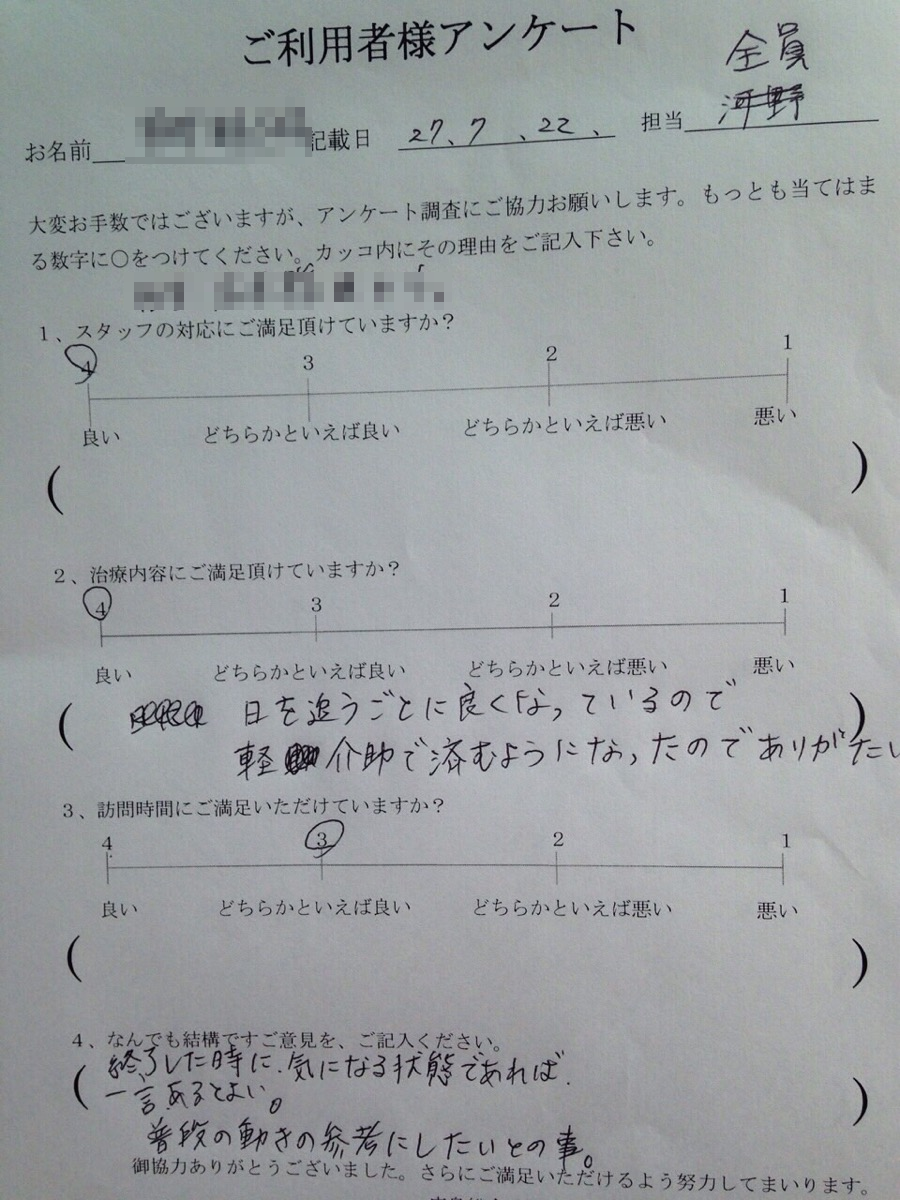 ご利用者様アンケート
全員
お名前 記載日 27、7、22、 担当 河野
大変お手数ではございますが、アンケート調査にご協力お願いします。もっとも当てはま
る数字に○をつけてください。カッコ内にその理由をご記入下さい。
1、スタッフの対応にご満足頂けていますか？
4 3 2 1
良い どちらかといえば良い どちらかといえば悪い 悪い
( )
2、治療内容にご満足頂けていますか？
4 3 2 1
良い どちらかといえば良い どちらかといえば悪い 悪い
( 日を追うごとに良くなっているので )
軽介助で済むようになったのでありがたい
3、訪問時間にご満足いただけていますか？
4 3 2 1
良い どちらかといえば良い どちらかといえば悪い 悪い
( )
4、なんでも結構ですご意見を、ご記入ください。
( 終了した時に、気になる状態であれば )
一言あるとよい。
普段の動きの参考にしたいとの事。
御協力ありがとうございました。さらにご満足いただけるよう努力してまいります。